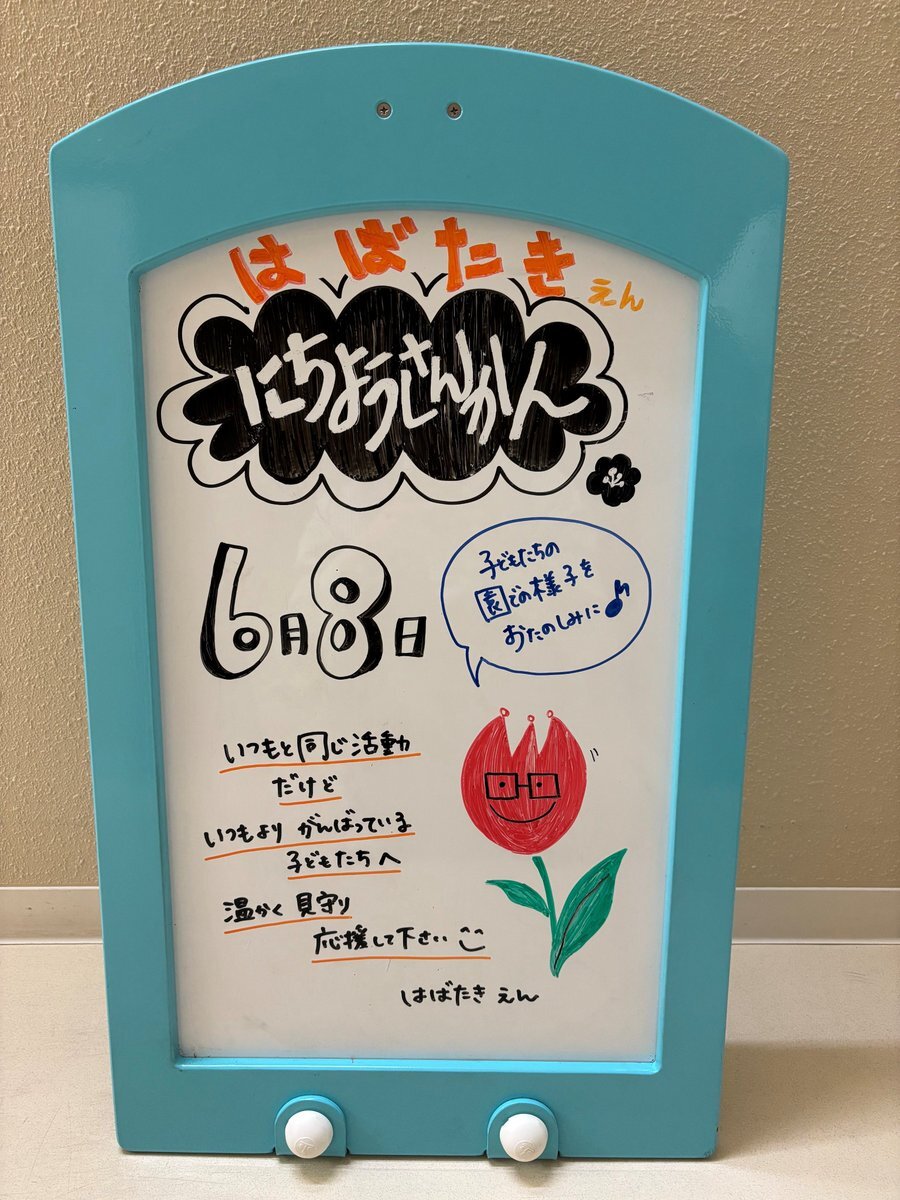 はばたきえん
にちようさんかん
6月8日
子どもたちの
園での様子を
おたのしみに♪
いつもと同じ活動
だけど
いつもより がんばっている
子どもたちへ
温かく見守り
応援して下さい
はばたき えん